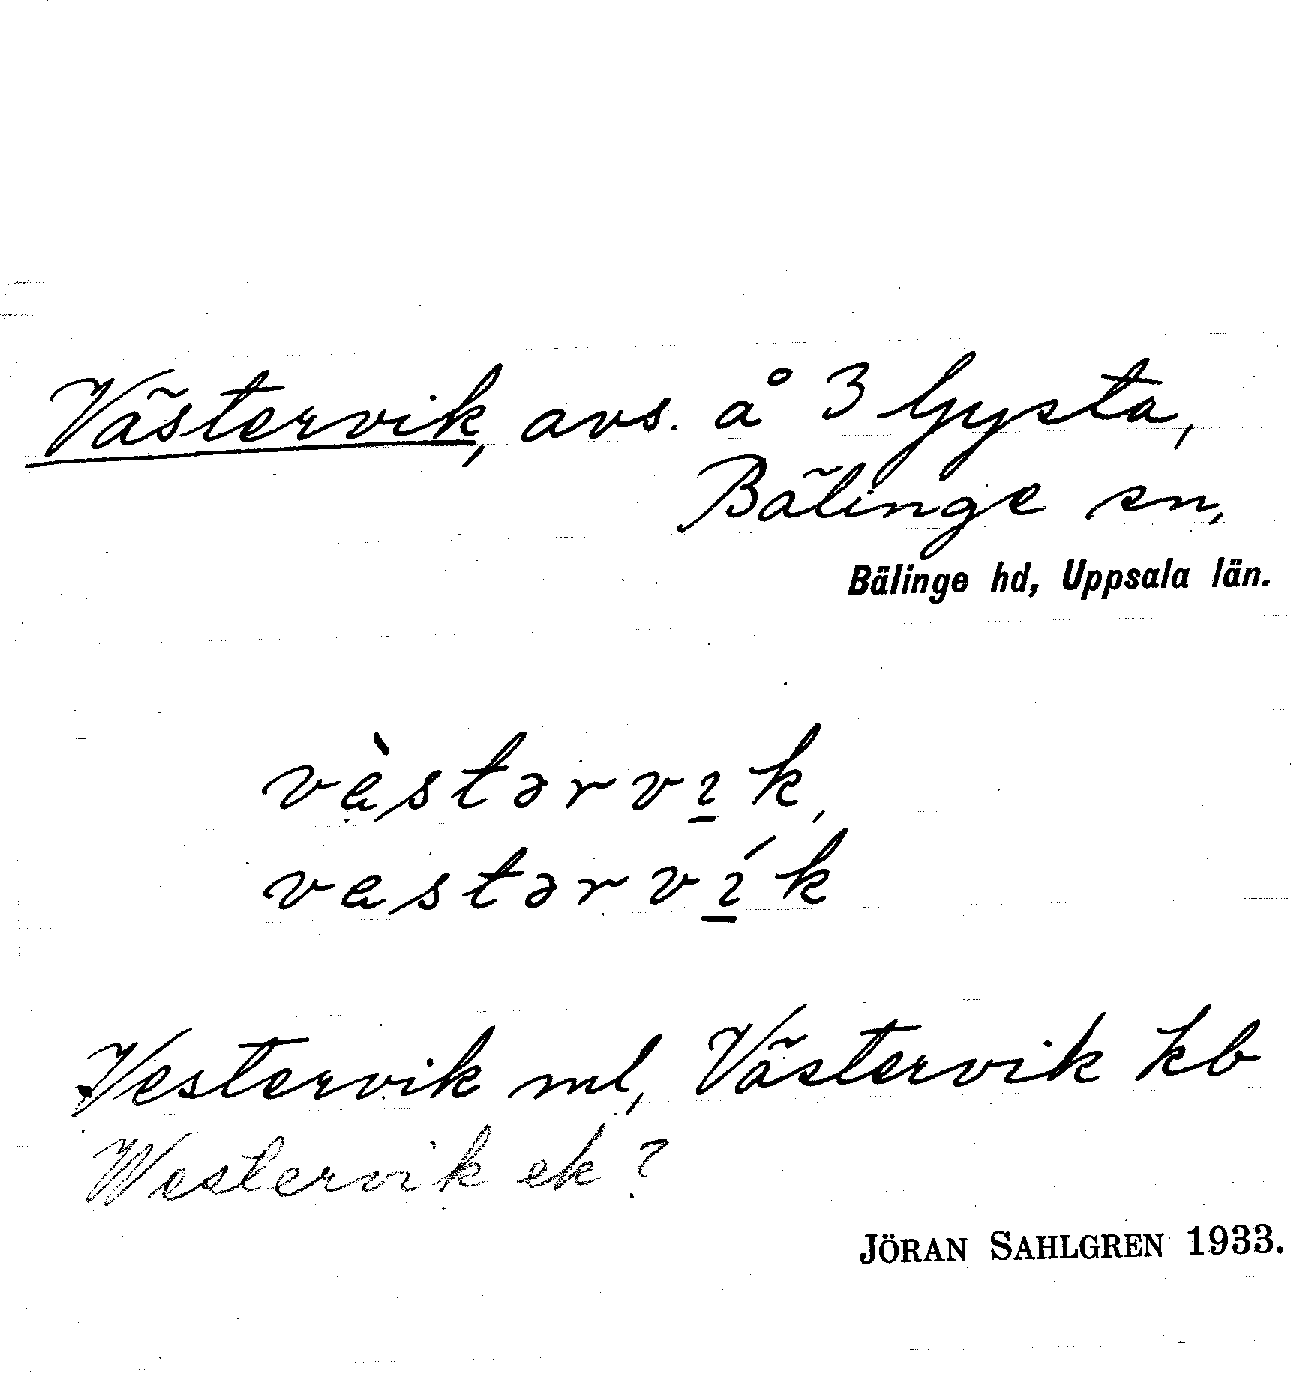 Västervik, avs. å 3 Ljysta,
Bälinge sn,
Bälinge hd, Uppsala län.
vàstərvık,
vastərvík
Vestervik ml, Västervik kb
Westervik ek?
JÖRAN SAHLGREN 1933.